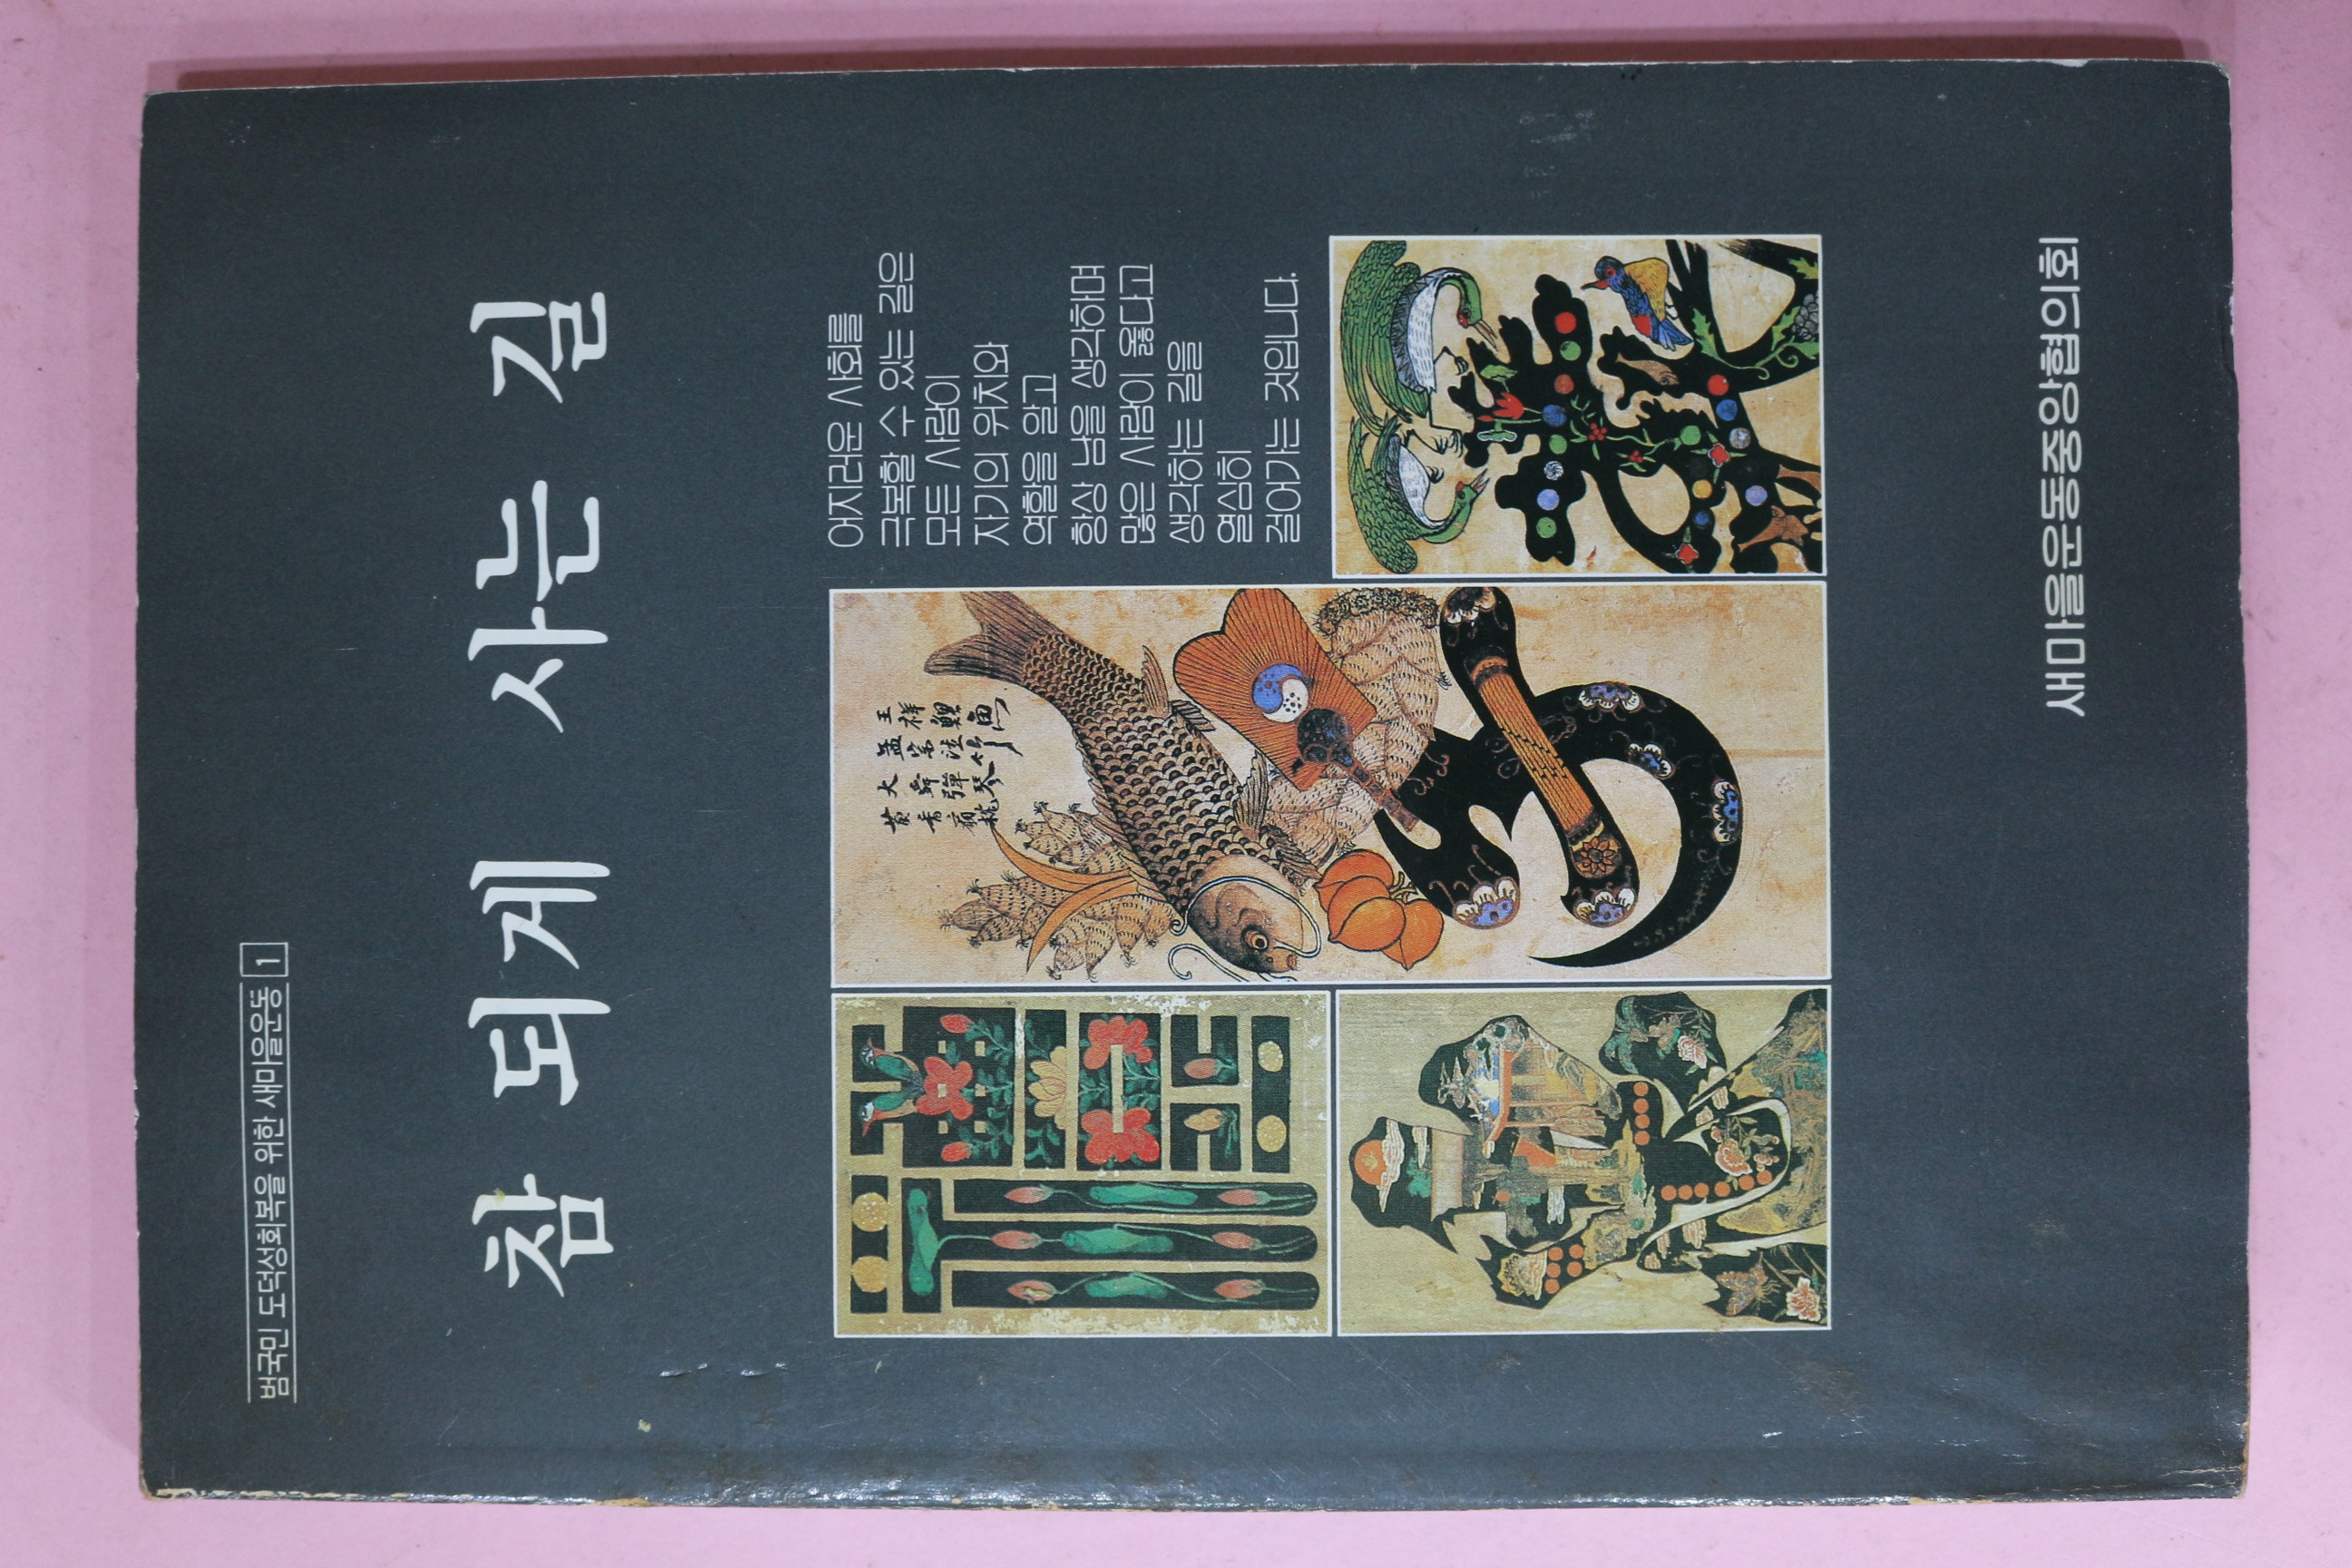 범국민 도덕성회복을 위한 새마을운동 1
참 되게 사는 길
어지러운 사회를
극복할 수 있는 길은
모든 사람이
자기의 위치와
역할을 알고
항상 남을 생각하며
많은 사람이 옳다고
생각하는 길을
열심히
걸어가는 것입니다.
王祥鯉魚
孟宗泣竹
大舜彈琴
黃香扇枕
새마을운동중앙협의회